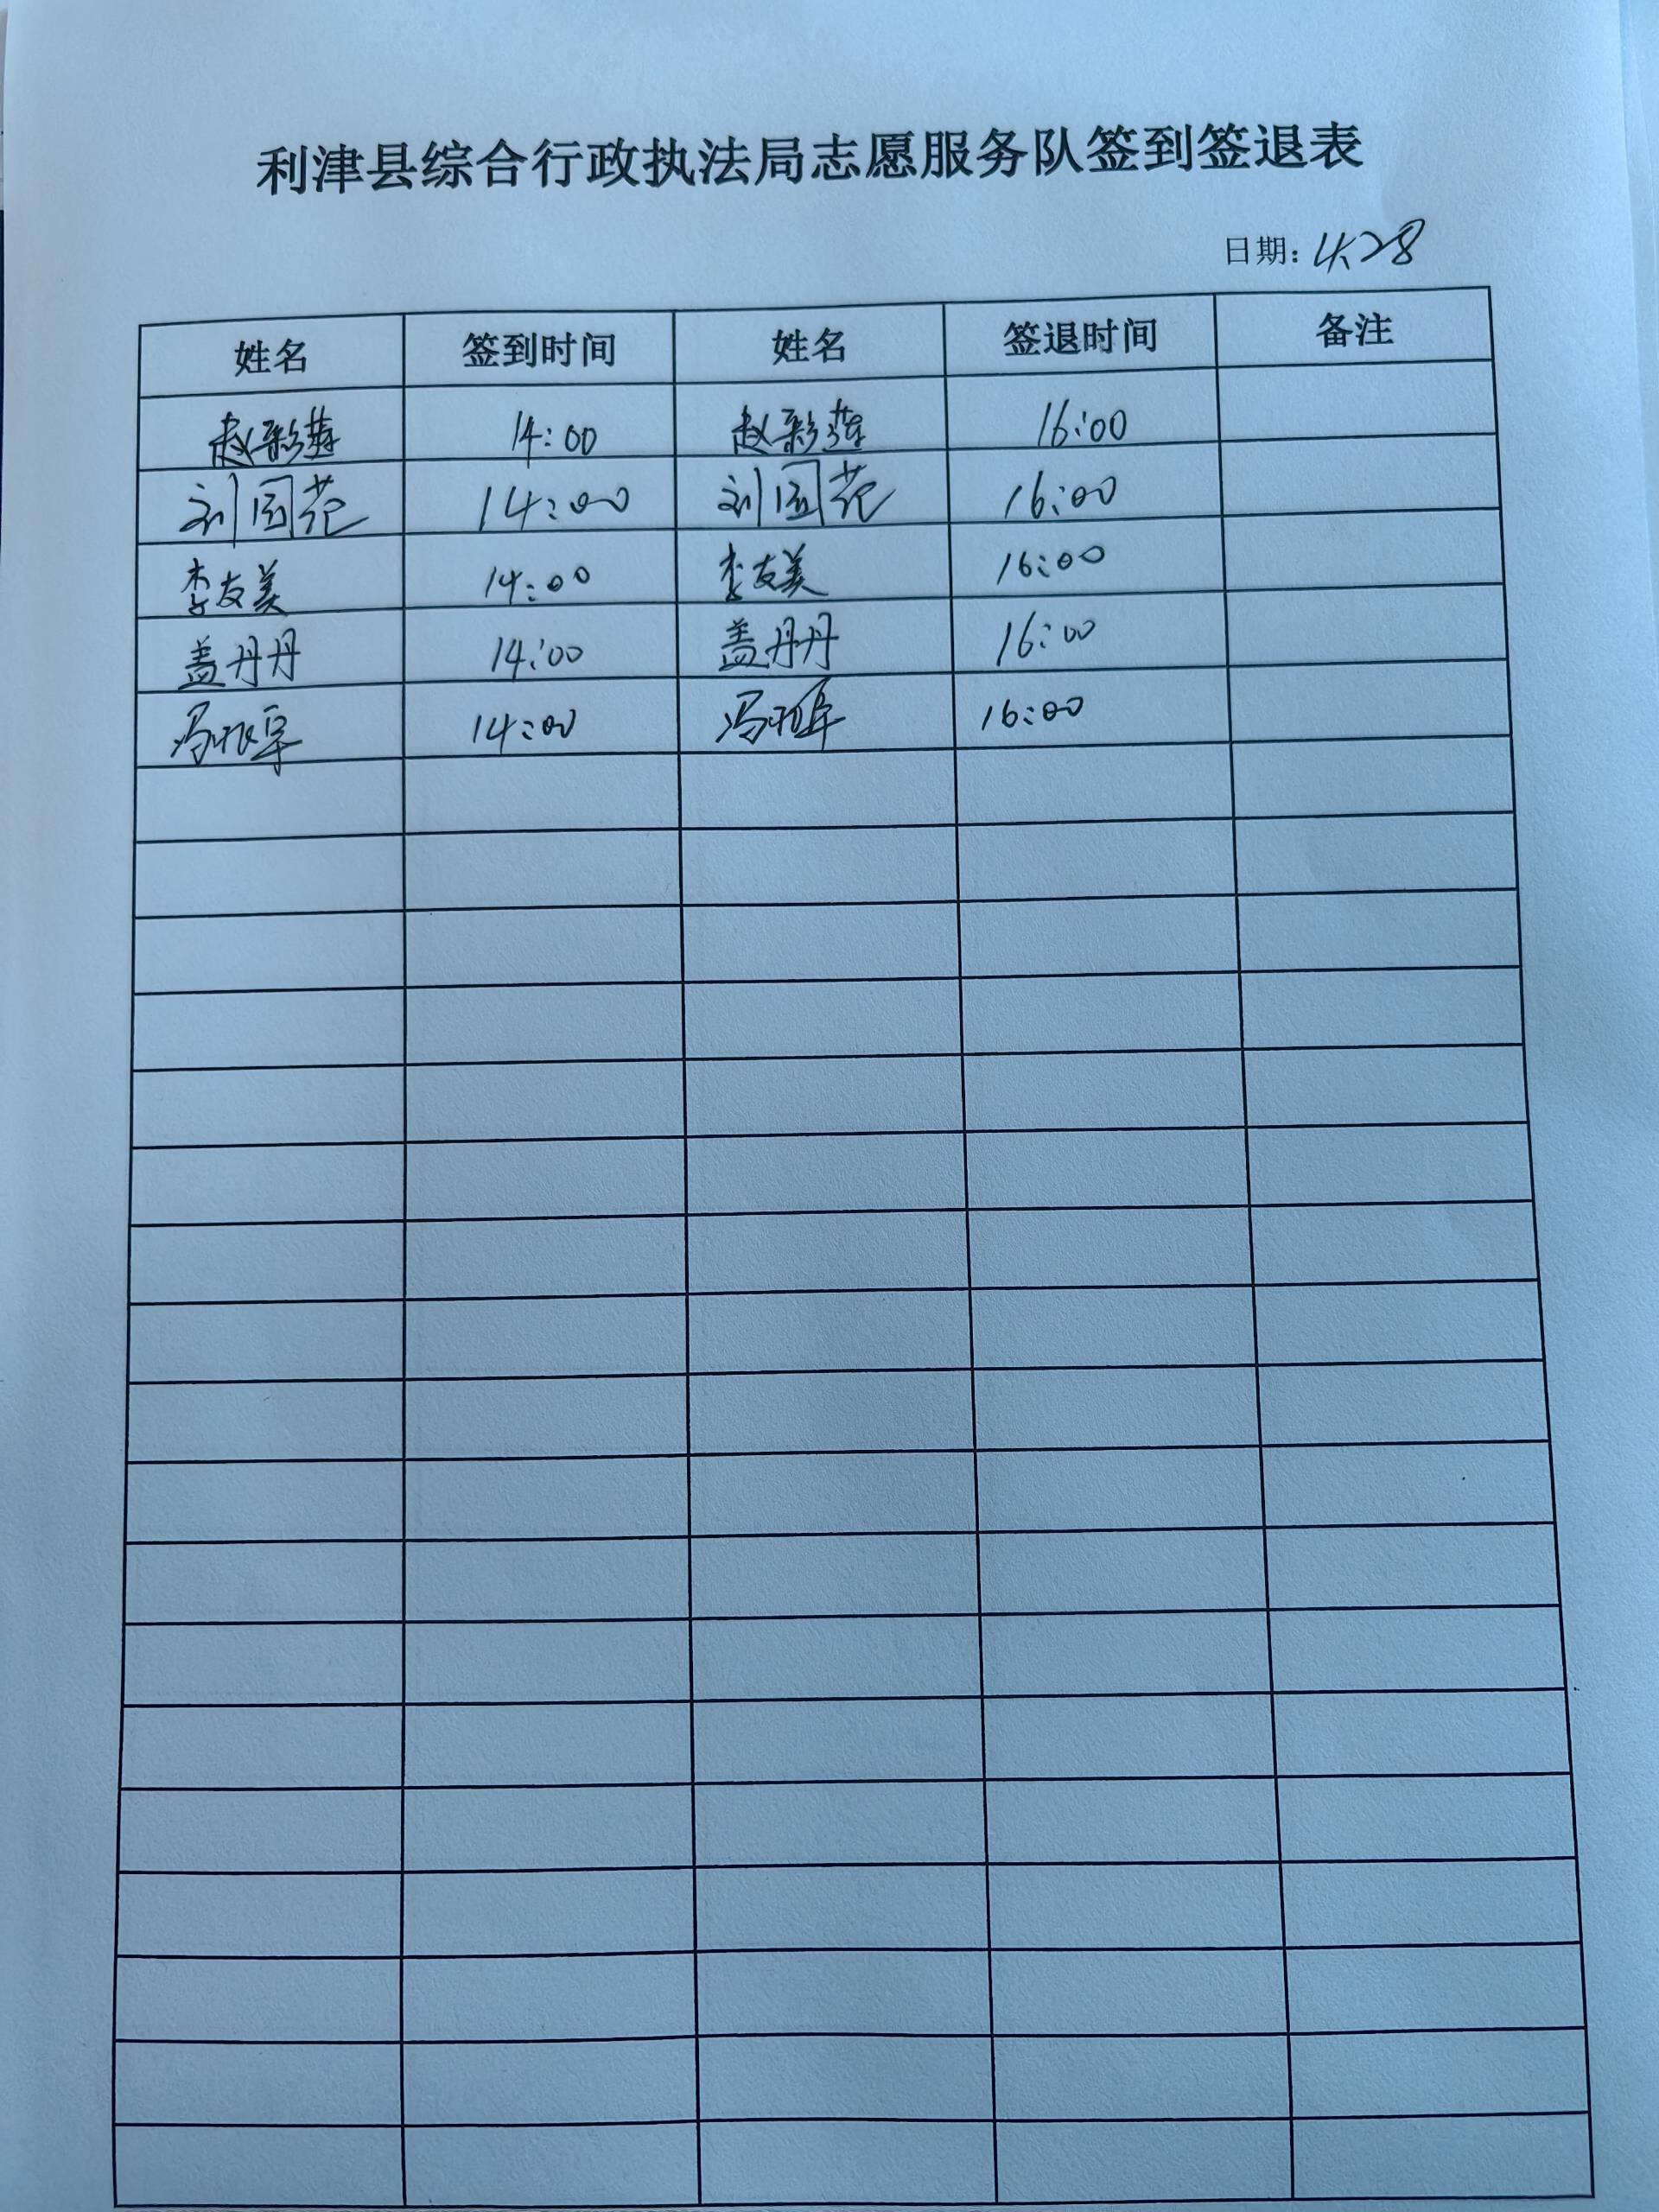 利津县综合行政执法局志愿服务队签到签退表
日期: 4.28
姓名 签到时间 姓名 签退时间 备注
赵彩莲 14:00 赵彩莲 16:00
刘国花 14:00 刘国花 16:00
李友美 14:00 李友美 16:00
盖丹丹 14:00 盖丹丹 16:00
冯 14:00 冯 16:00